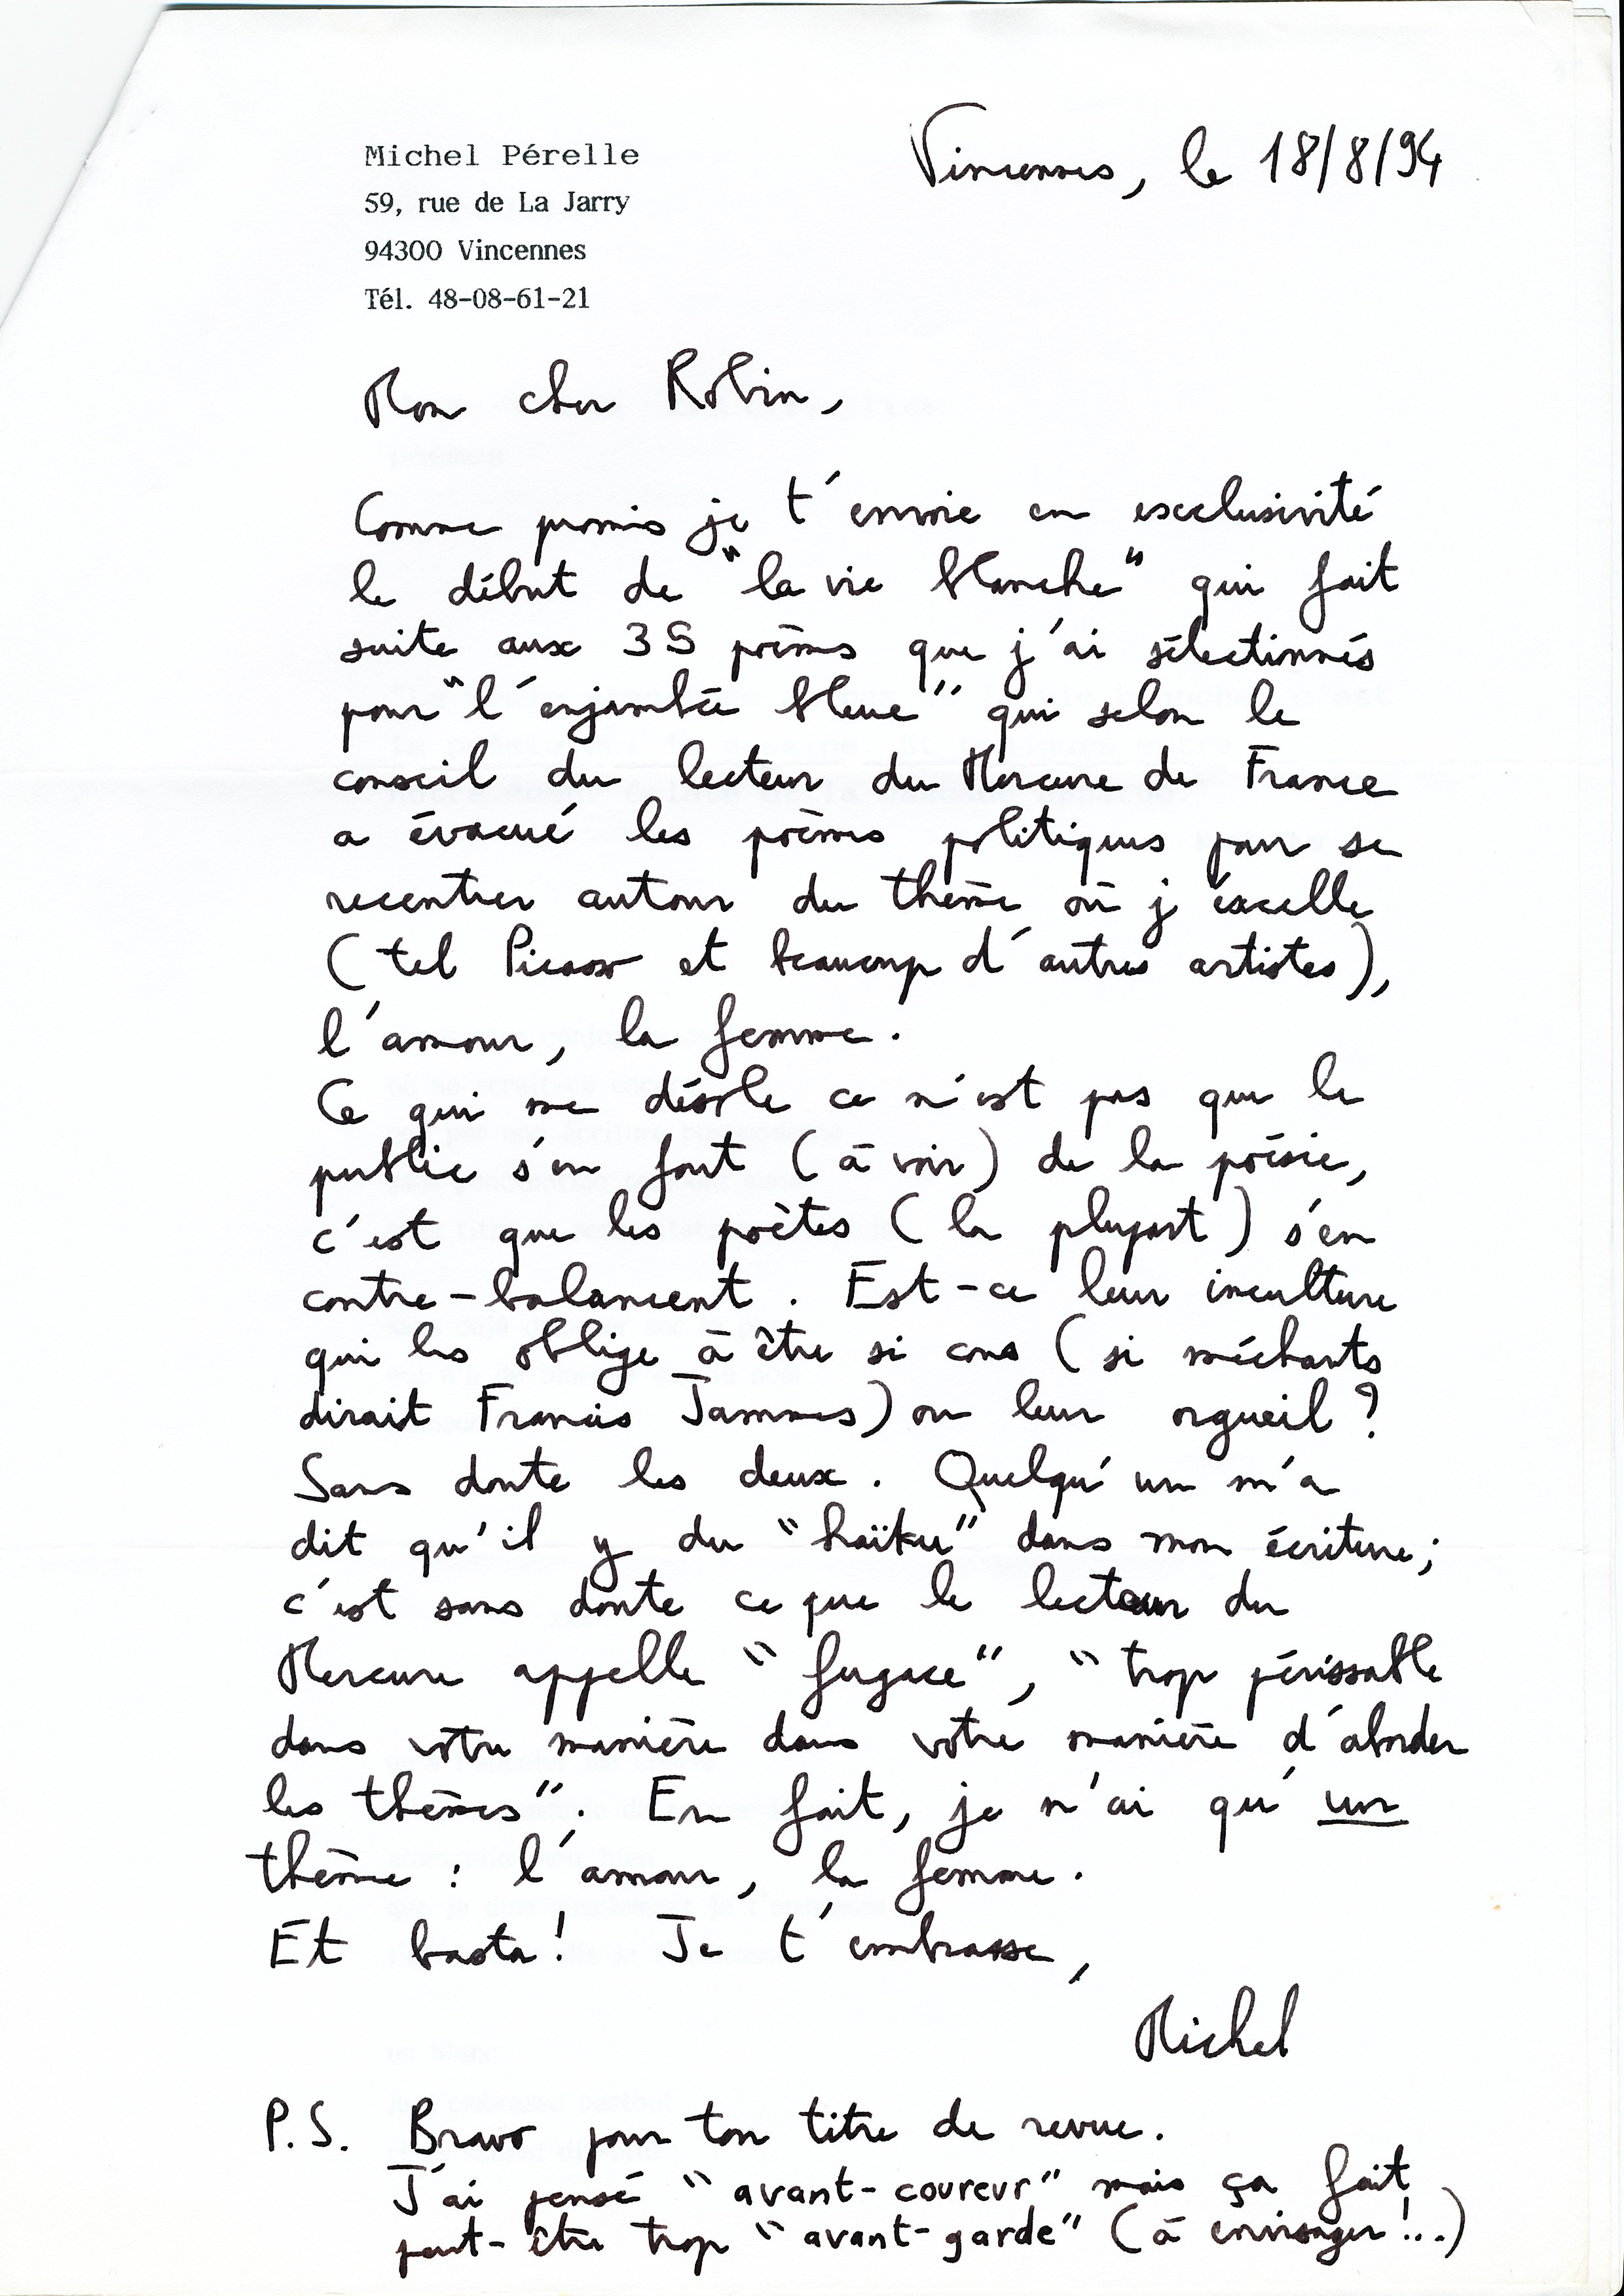 Michel Pérelle
59, rue de La Jarry
94300 Vincennes
Tél. 48-08-61-21
Vincennes, le 18/8/94
Mon cher Robin,
Comme promis je t'envoie en exclusivité
le début de "la vie blanche" qui fait
suite aux 35 poèmes que j'ai sélectionnés
pour "l'enjambée bleue" qui selon le
conseil du lecteur du Mercure de France
a évacué les poèmes politiques pour se
recentrer autour du thème où j'excelle
(tel Picasso et beaucoup d'autres artistes),
l'amour, la femme.
Ce qui me désole ce n'est pas que le
public s'en fout (à voir) de la poésie,
c'est que les poètes (la plupart) s'en
contre-balancent. Est-ce leur inculture
qui les oblige à être si cons (si méchants
dirait Francis Jammes) ou leur orgueil ?
Sans doute les deux. Quelqu'un m'a
dit qu'il y du "haïku" dans mon écriture ;
c'est sans doute ce que le lecteur du
Mercure appelle "fugace", "trop périssable
dans votre manière dans votre manière d'aborder
les thèmes". En fait, je n'ai qu'un
thème : l'amour, la femme.
Et basta ! Je t'embrasse,
Michel
P.S. Bravo pour ton titre de revue.
J'ai pensé "avant-coureur" mais ça fait
peut-être trop "avant-garde" (à envisager !...)